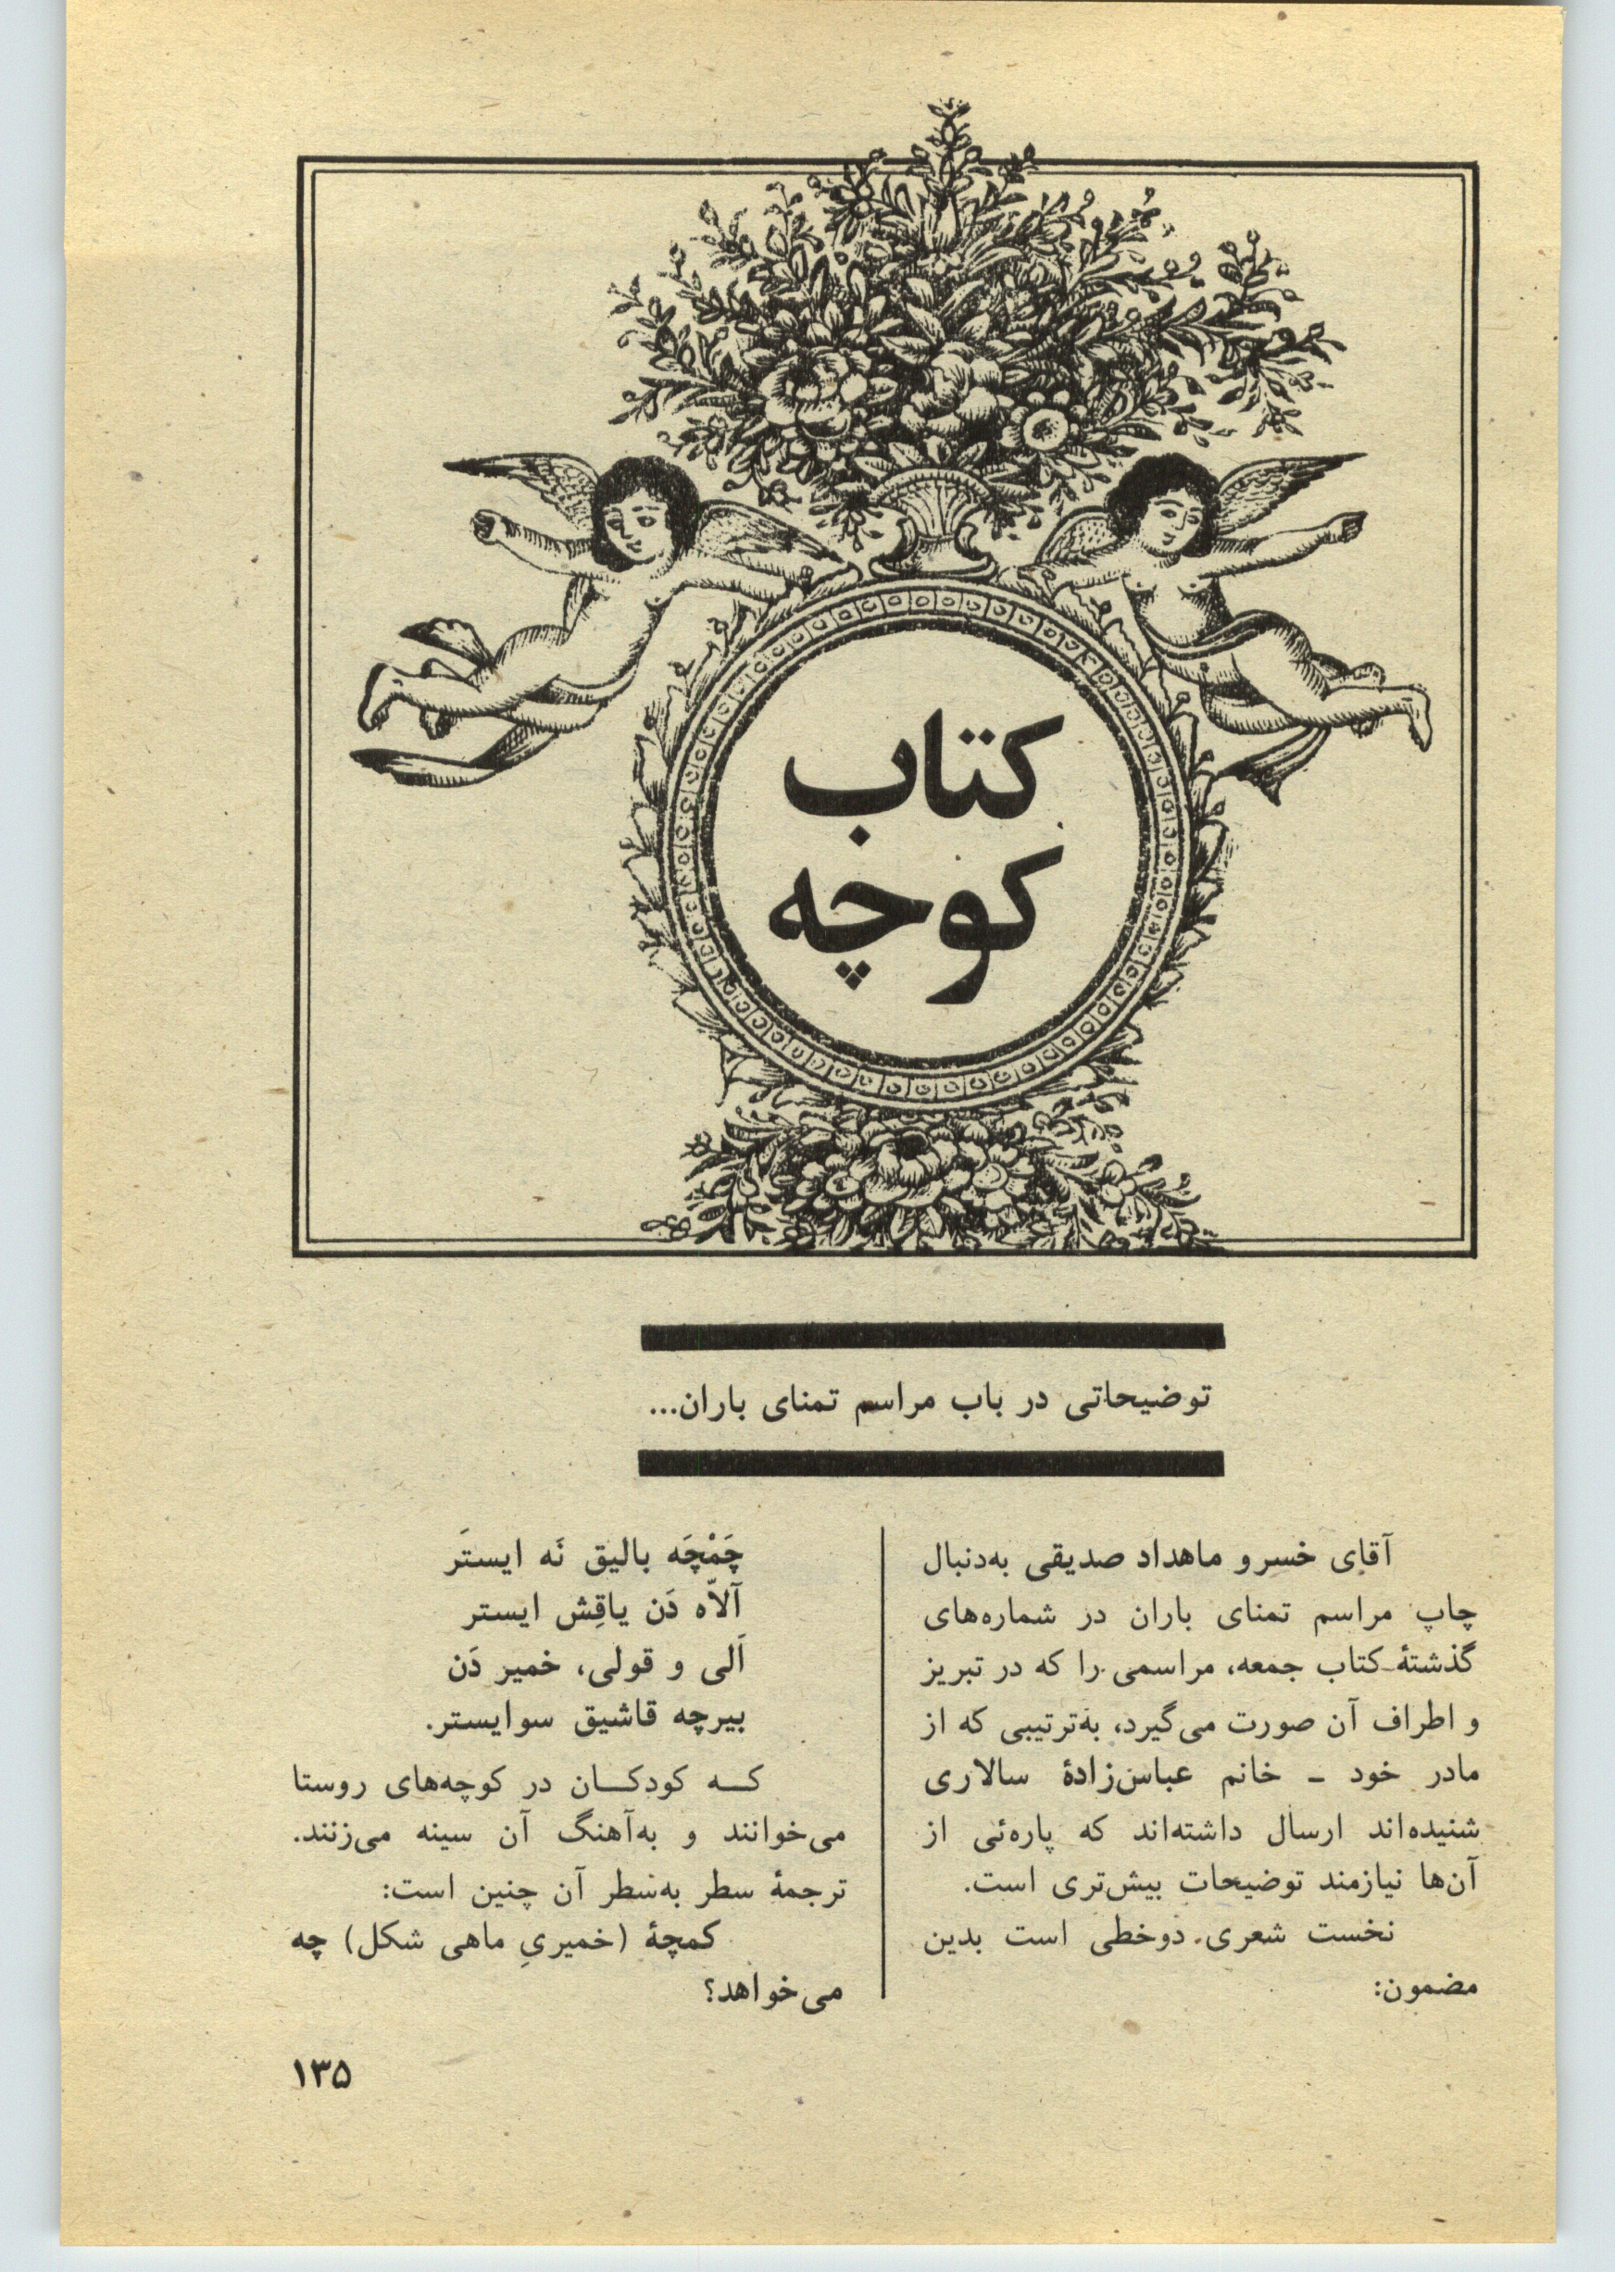 کتاب
کوچه
توضیحاتی در باب مراسم تمنای باران...
آقای خسرو ماهداد صدیقی به‌دنبال
چاپ مراسم تمنای باران در شماره‌های
گذشتهٔ کتاب جمعه، مراسمی را که در تبریز
و اطراف آن صورت می‌گیرد، به‌ترتیبی که از
مادر خود ـ خانم عباس‌زادهٔ سالاری
شنیده‌اند ارسال داشته‌اند که پاره‌ئی از
آن‌ها نیازمند توضیحات بیش‌تری است.
نخست شعری دوخطی است بدین
مضمون:
چَمْچَه بالیق نَه ایستَر
آلاّه دَن یاقِش ایستر
اَلی و قولی، خمیر دَن
بیرچه قاشیق سوایستر.
کـه کودکـان در کوچه‌های روستا
می‌خوانند و به‌آهنگ آن سینه می‌زنند.
ترجمهٔ سطر به‌سطر آن چنین است:
کمچهٔ (خمیریِ ماهی شکل) چه
می‌خواهد؟
۱۳۵